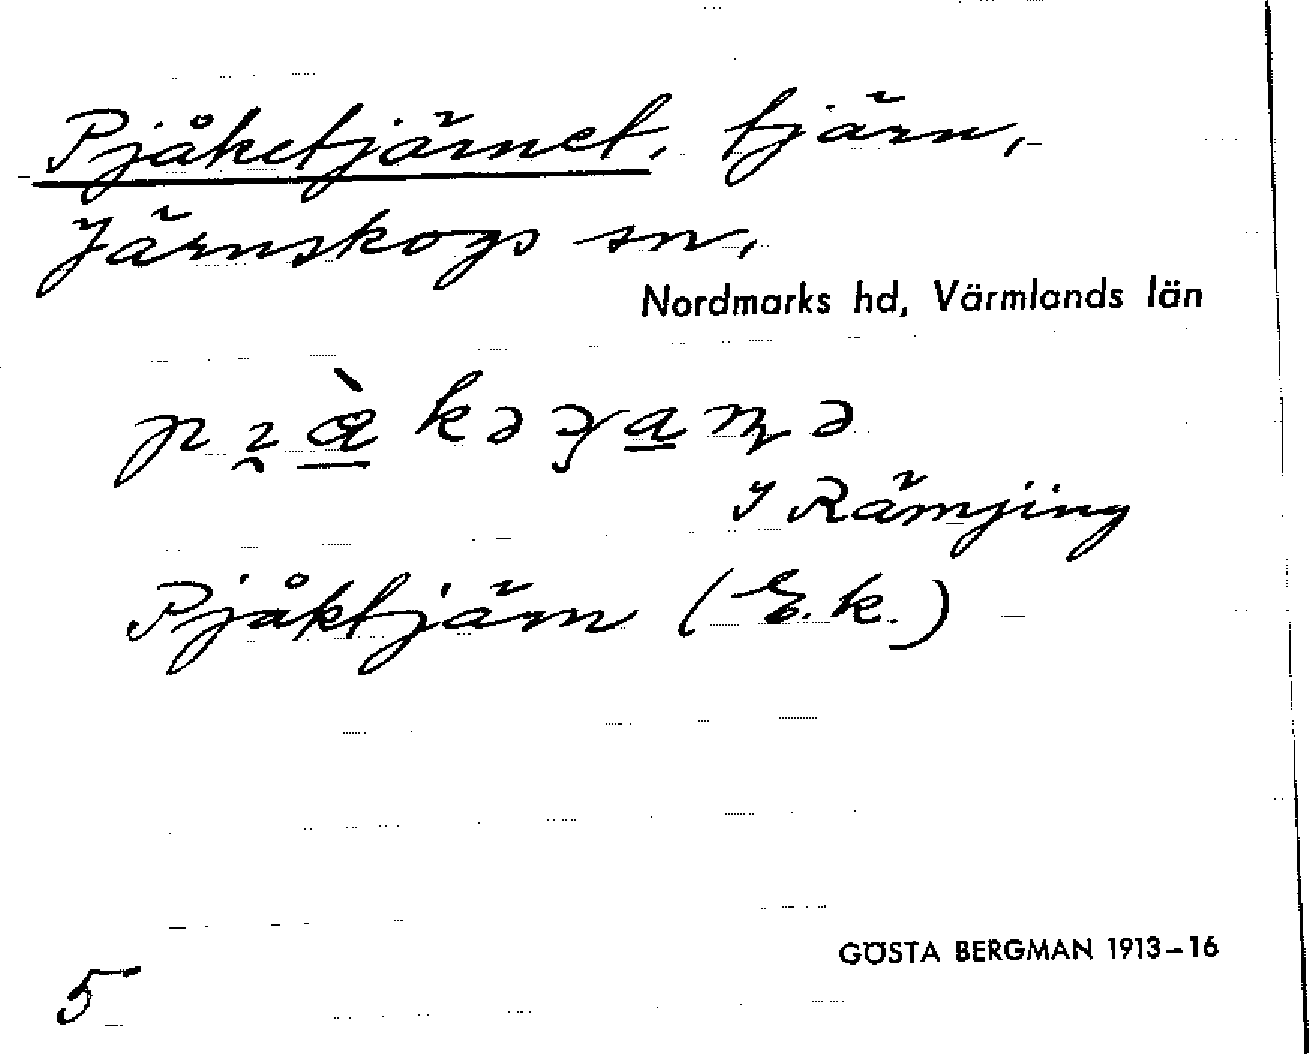 Pjåketjärnet, tjärn,
Järnskogs sn,
Nordmarks hd, Värmlands län
I Rämjing
Pjåktjärn (E.k.)
GÖSTA BERGMAN 1913–16
5